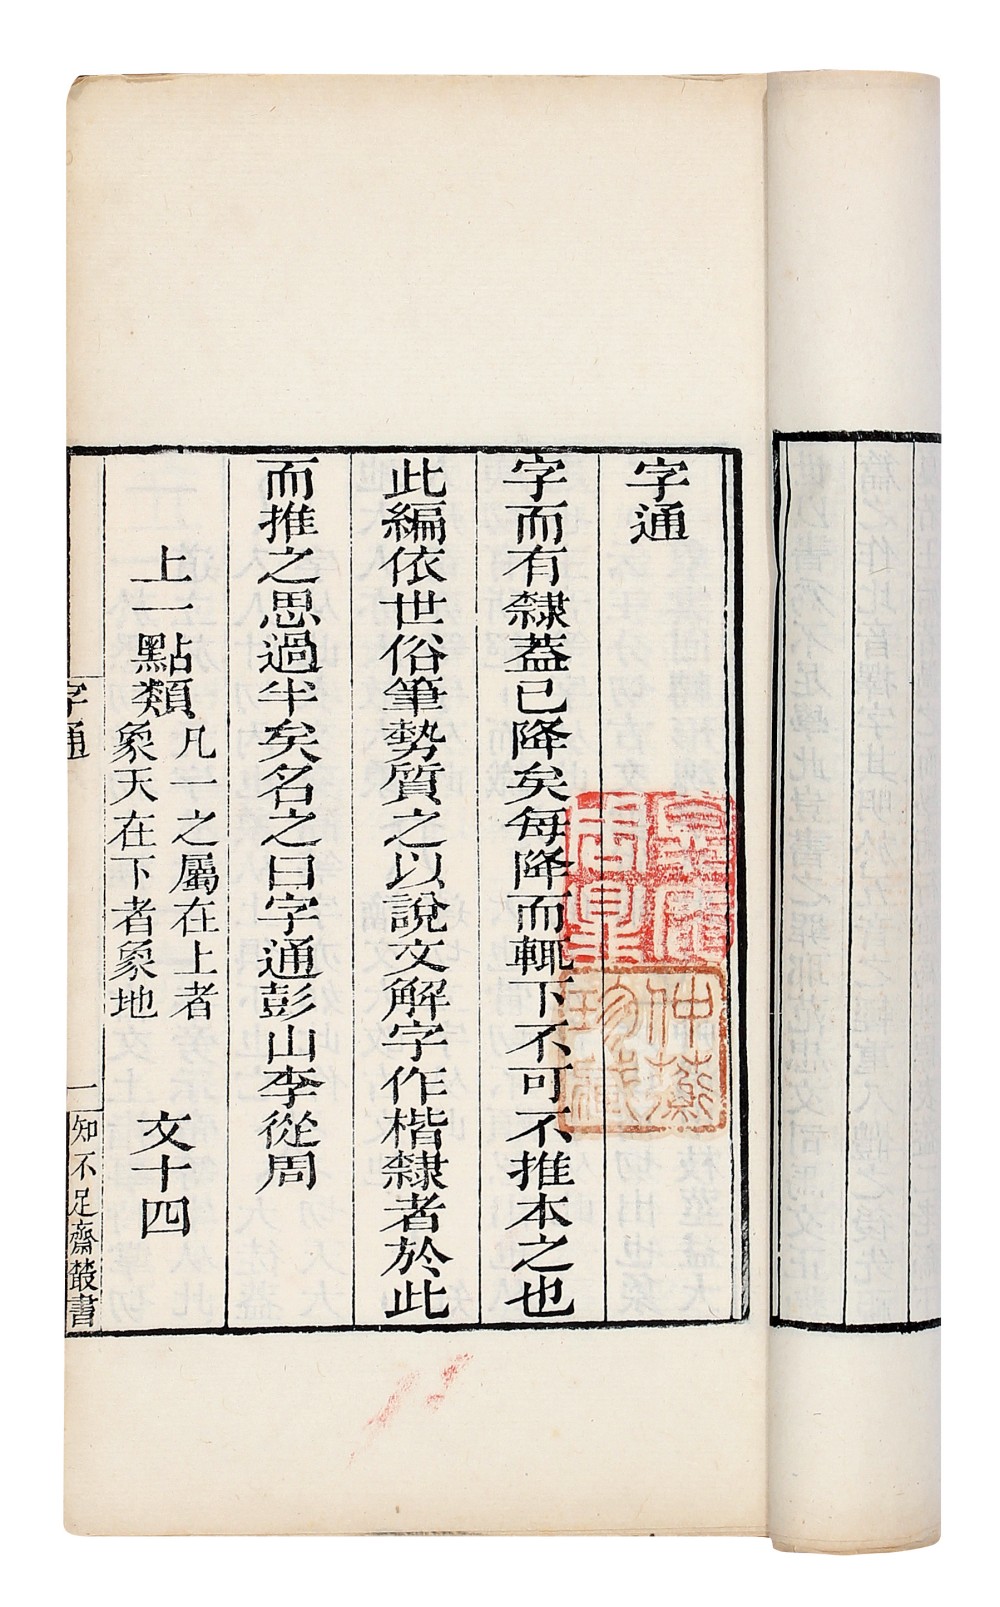 字通
字而有隸蓋已降矣每降而輒下不可不推本之也
此編依世俗筆勢質之以說文解字作楷隸者於此
而推之思過半矣名之曰字通彭山李從周
上一點類凡一之屬在上者象天在下者象地文十四
字通
一
知不足齋叢書
仲蘓珍藏